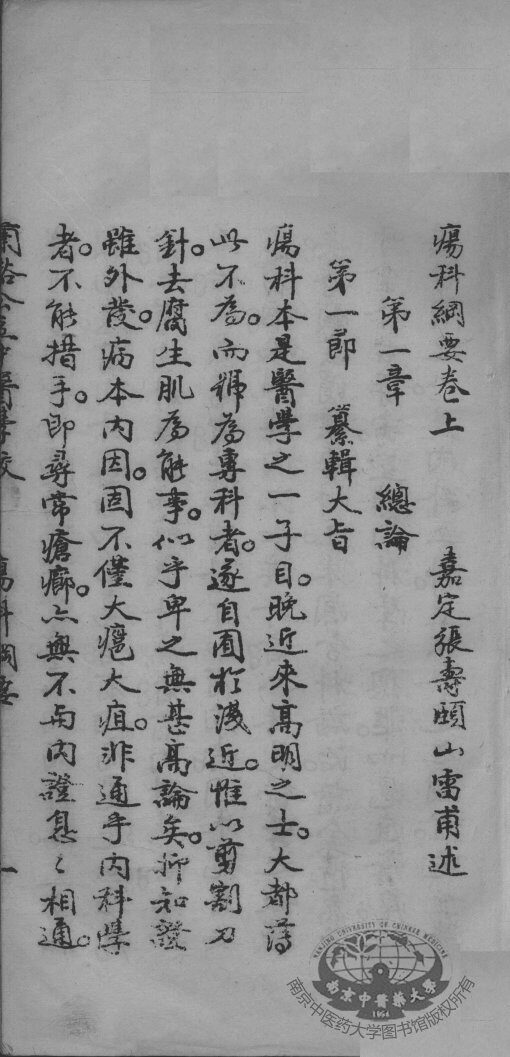 瘍科綱要卷上　嘉定張壽頤山雷甫述
第一章　總論
第一節　纂輯大旨
瘍科本是醫學之一子目。晚近來高明之士。大都薄
此不為。而號為專科者。遂自囿於淺近。惟以剪割刀
針。去腐生肌為能事。似乎卑之無甚高論矣。抑知證
雖外發。病本內因。固不僅大癰大疽。非通乎內科學
者。不能措手。即尋常瘡癤。亦無不與內證息〻相通。
蘭谿公立中醫學校　瘍科綱要　一
NANJING UNIVERSITY OF CHINESE MEDICINE
南京中醫藥大學
1954
南京中医药大学图书馆版权所有